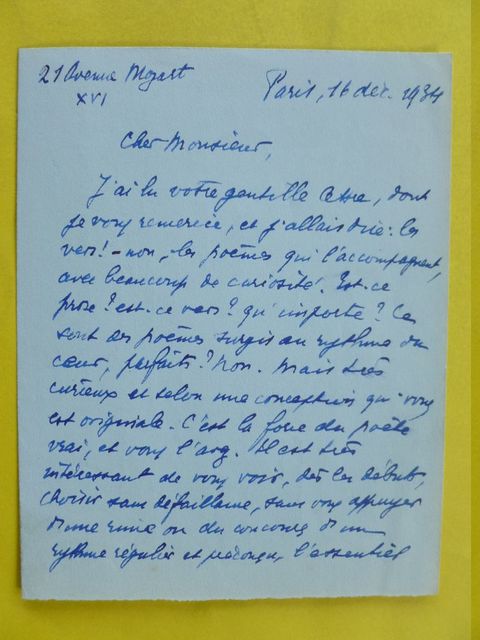 21 Avenue Mozart
XVI
Paris, 16 déc. 1934
Cher Monsieur,
J'ai lu votre gentille lettre, dont
je vous remercie, et j'allais dire : les
vers! – non, les poèmes qui l'accompagnent,
avec beaucoup de curiosité. Est-ce
prose? est-ce vers? qu'importe? Ce
sont des poèmes surgis au rythme du
cœur, parfaits? Non. Mais très
curieux et selon une conception qui vous
est originale. C'est la force du poète
vrai, et vous l'avez. Il est très
intéressant de vous voir, dès les débuts,
choisir sans défaillance, sans vous appuyer
d'une rime ou du concours d'un
rythme régulier et préconçu, l'essentiel